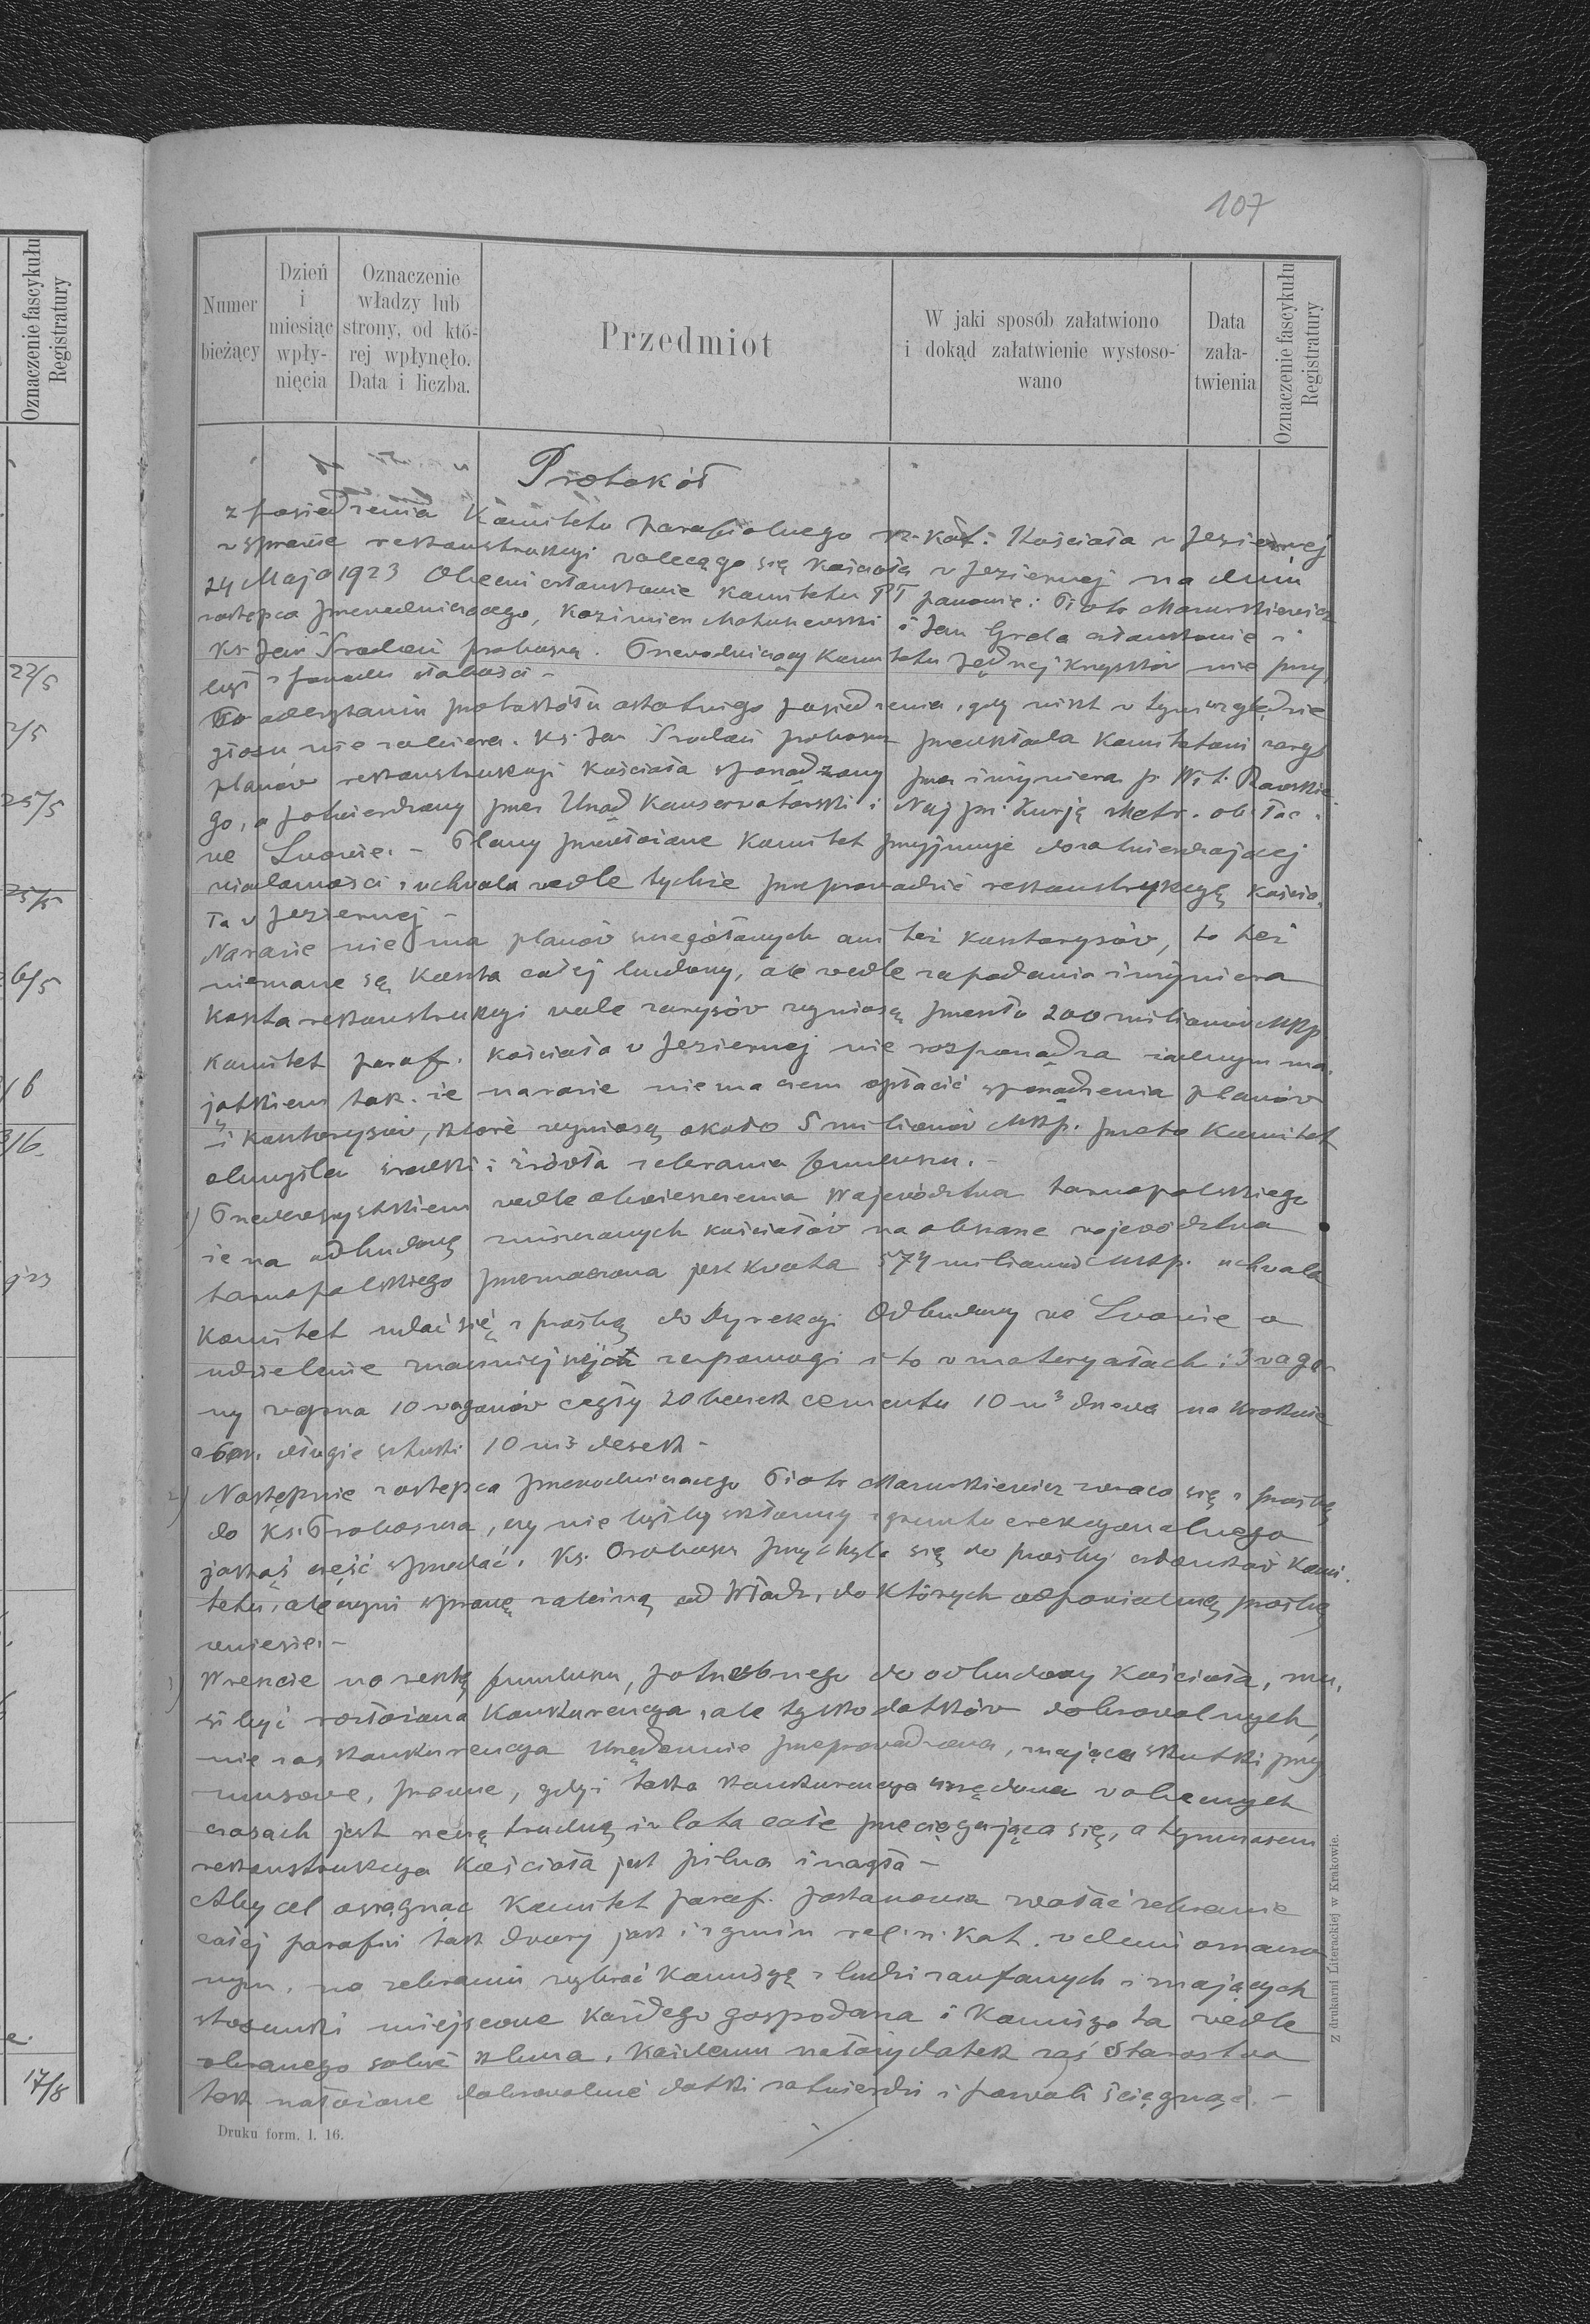 107
Oznaczenie fascykułu
Registratury
22/5
2/5
25/5
25/5
6/5
16
3/6.
17/8
Numer
bieżący
Dzień
i
miesiąc
wpły-
nięcia
Oznaczenie
władzy lub
strony, od któ-
rej wpłynęło.
Data i liczba.
Przedmiot
W jaki sposób załatwiono
i dokąd załatwienie wystoso-
wano
Data
zała-
twienia
Oznaczenie fascykułu
Registratury
Protokół
z posiedzenia Komitetu parafialnego rz. kat. Kościoła w Jeziernej
w sprawie rekonstrukcyi walącego się kościoła w Jeziernej na dniu
24 Maja 1923 Obecni członkowie Komitetu PT panowie: Piotr
zastępca przewodniczącego, Kazimierz i Jan Grela członkowie i
Ks. Jan proboszcz. Przewodniczący Komitetu Jędrzej nie przy
był z powodu słabości -
Po odczytaniu protokółu ostatniego posiedzenia, gdy nikt w tym względzie
głosu nie zabiera. Ks. Jan proboszcz przedkłada Komitetowi zarys
planów rekonstrukcyi Kościoła sporządzony przez inżyniera p. Wit. Rawskie-
go, a potwierdzony przez Urząd Konserwatorski i Najprz. Kurję Metr. ob. łac.
we Lwowie. - Plany przedłożone Komitet przyjmuje do zatwierdzającej
wiadomości i uchwala wedle tychże przeprowadzić rekonstrukcyę kościo-
ła w Jeziernej -
Narazie nie ma planów szczegółowych ani też kosztorysów, to też
nieznane są koszta całej budowy, ale wedle zapodania inżyniera
koszta rekonstrukcyi wedle zarysów wyniosą przeszło 200 milionów MKp
Komitet paraf. kościoła w Jeziernej nie rozporządza żadnym ma-
jątkiem tak, że narazie nie ma czem opłacić sporządzenia planów
i kosztorysów, które wyniosą około 5 milionów MKp. przeto Komitet
obmyśla środki i źródła zebrania funduszu. -
1) Przedewszystkiem wedle obwieszczenia Województwa tarnopolskiego
że na odbudowę zniszczonych kościołów na obszarze województwa
tarnopolskiego przeznaczona jest kwota 574 milionów MKp. uchwala
Komitet udać się z prośbą do Dyrekcyi Odbudowy we Lwowie o
udzielenie znaczniejszej zapomogi i to w materyałach: 3 wago-
ny wapna 10 wagonów cegły 20 beczek cementu 10 m³ drzewa na krokwie
a 6 m. długie sztuki 10 m³ desek -
2) Następnie zastępca przewodniczącego Piotr zwraca się z prośbą
do Ks. Proboszcza, czy nie byłby skłonny z gruntu erekcyonalnego
jakąś część sprzedać. Ks. Proboszcz przychyla się do prośby członków Komi-
tetu, ale czyni sprawę zależną od Władz, do których odpowiednią prośbę
wniesie. -
3) Wreszcie na resztę funduszu, potrzebnego do odbudowy Kościoła, mu-
si być rozłożona Konkurencya, ale tylko datków dobrowolnych,
nie zaś konkurencya urzędownie przeprowadzona, mająca skutki przy
musowe, prawne, gdyż taka konkurencya urzędowa w obecnych
czasach jest rzeczą trudną i w lata całe przeciągającą się, a tymczasem
rekonstrukcya Kościoła jest pilna i nagła -
Aby cel osiągnąć Komitet paraf. postanawia zwołać zebranie
całej parafii tak dwory jak i z gmin rel. rz. kat. w dniu oznaczo
nym, na zebraniu wybrać Komisyę z ludzi zaufanych i znających
stosunki miejscowe każdego gospodarza i Komisya ta wedle
obranego sobie klucza, każdemu nałoży datek zaś Starostwo
tak nałożone dobrowolnie datki zatwierdzi i pozwoli ściągnąć. -
Druku form. l. 16.
Z drukarni Literackiej w Krakowie.